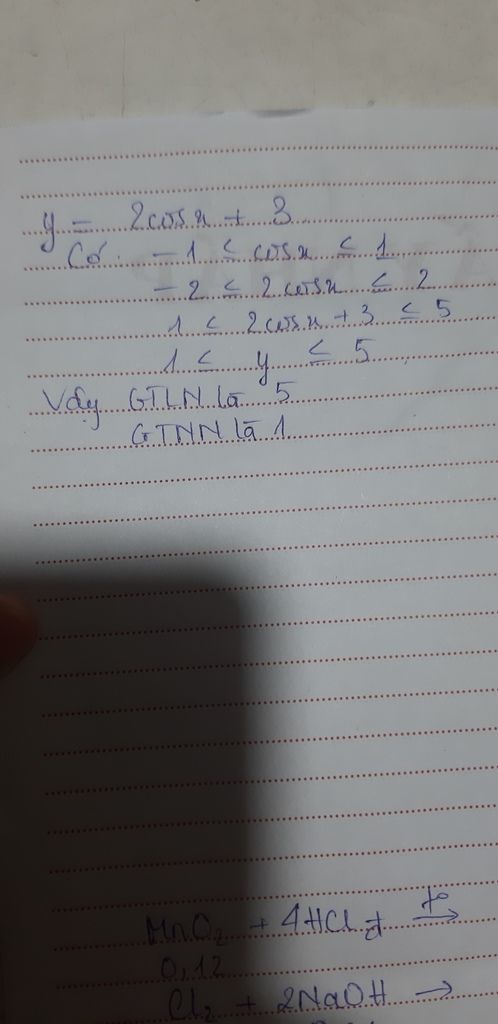 y = 2cosx + 3
Có: -1 ≤ cosx ≤ 1
-2 ≤ 2cosx ≤ 2
1 ≤ 2cosx + 3 ≤ 5
1 ≤ y ≤ 5
Vậy GTLN là 5
GTNN là 1
MnO₂ + 4HCl đ t° →
0,12
Cl₂ + 2NaOH →